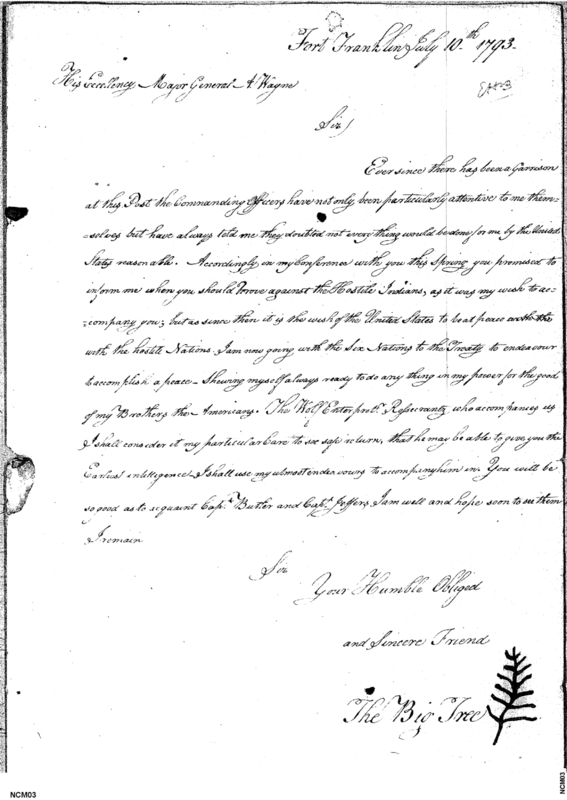 Fort Franklin July 10th 1793.
His Excellency Major General A Wayne
Sir
Ever since there has been a Garrison
at this Post the Commanding Officers have not only been particularly attentive to me them-
-selves but have always told me they doubted not every thing would be done for me by the United
States reasonable. Accordingly in my Conference with you this Spring you promised to
inform me when you should move against the Hostile Indians, as it was my wish to ac-
-company you; but as since then it is the wish of the United States to be at peace
with the hostile Nations. I am now going with the Six Nations to the Treaty to endeavour
to accomplish a peace - Shewing myself always ready to do any thing in my power for the good
of my Brothers the Americans. The Wolf who accompanies us
I shall consider it my particular Care to see safe return, that he may be able to give you the
Earliest intelligence. I shall use my utmost endeavours to accompany him in. You will be
so good as to acquaint Capt. Butler and Capt. Jeffers I am well and hope soon to see them
I remain
Sir
Your Humble Obliged
and Sincere Friend
The Big Tree
NCM03
NCM03